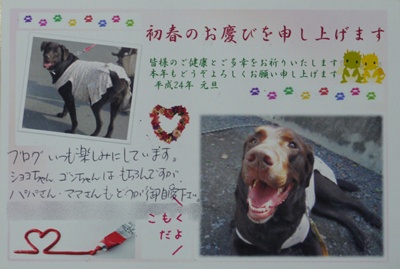 初春のお慶びを申し上げます
皆様のご健康とご多幸をお祈りいたします
本年もどうぞよろしくお願い申し上げます
平成24年 元旦
ブログいつも楽しみにしています。
ショコちゃん ゴンちゃんは もちろんですが
パパさん・ママさんもどうか御自愛下さい。
こもく
だよ